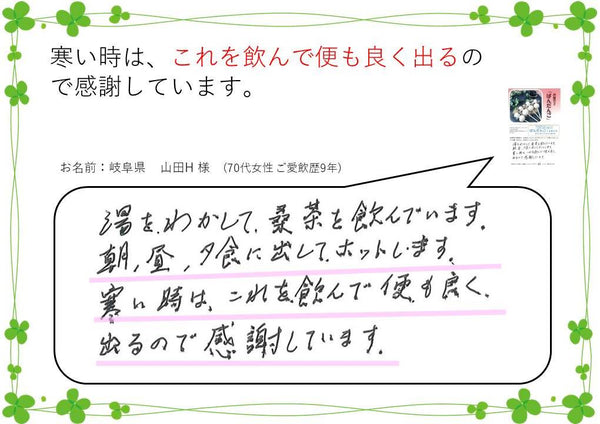 寒い時は、これを飲んで便も良く出るの
で感謝しています。
お名前：岐阜県　山田H 様　(70代女性 ご愛飲歴9年)
湯をわかして、桑茶を飲んでいます。
朝，昼，夕食に出してホットします。
寒い時は、これを飲んで便も良く、
出るので感謝しています。